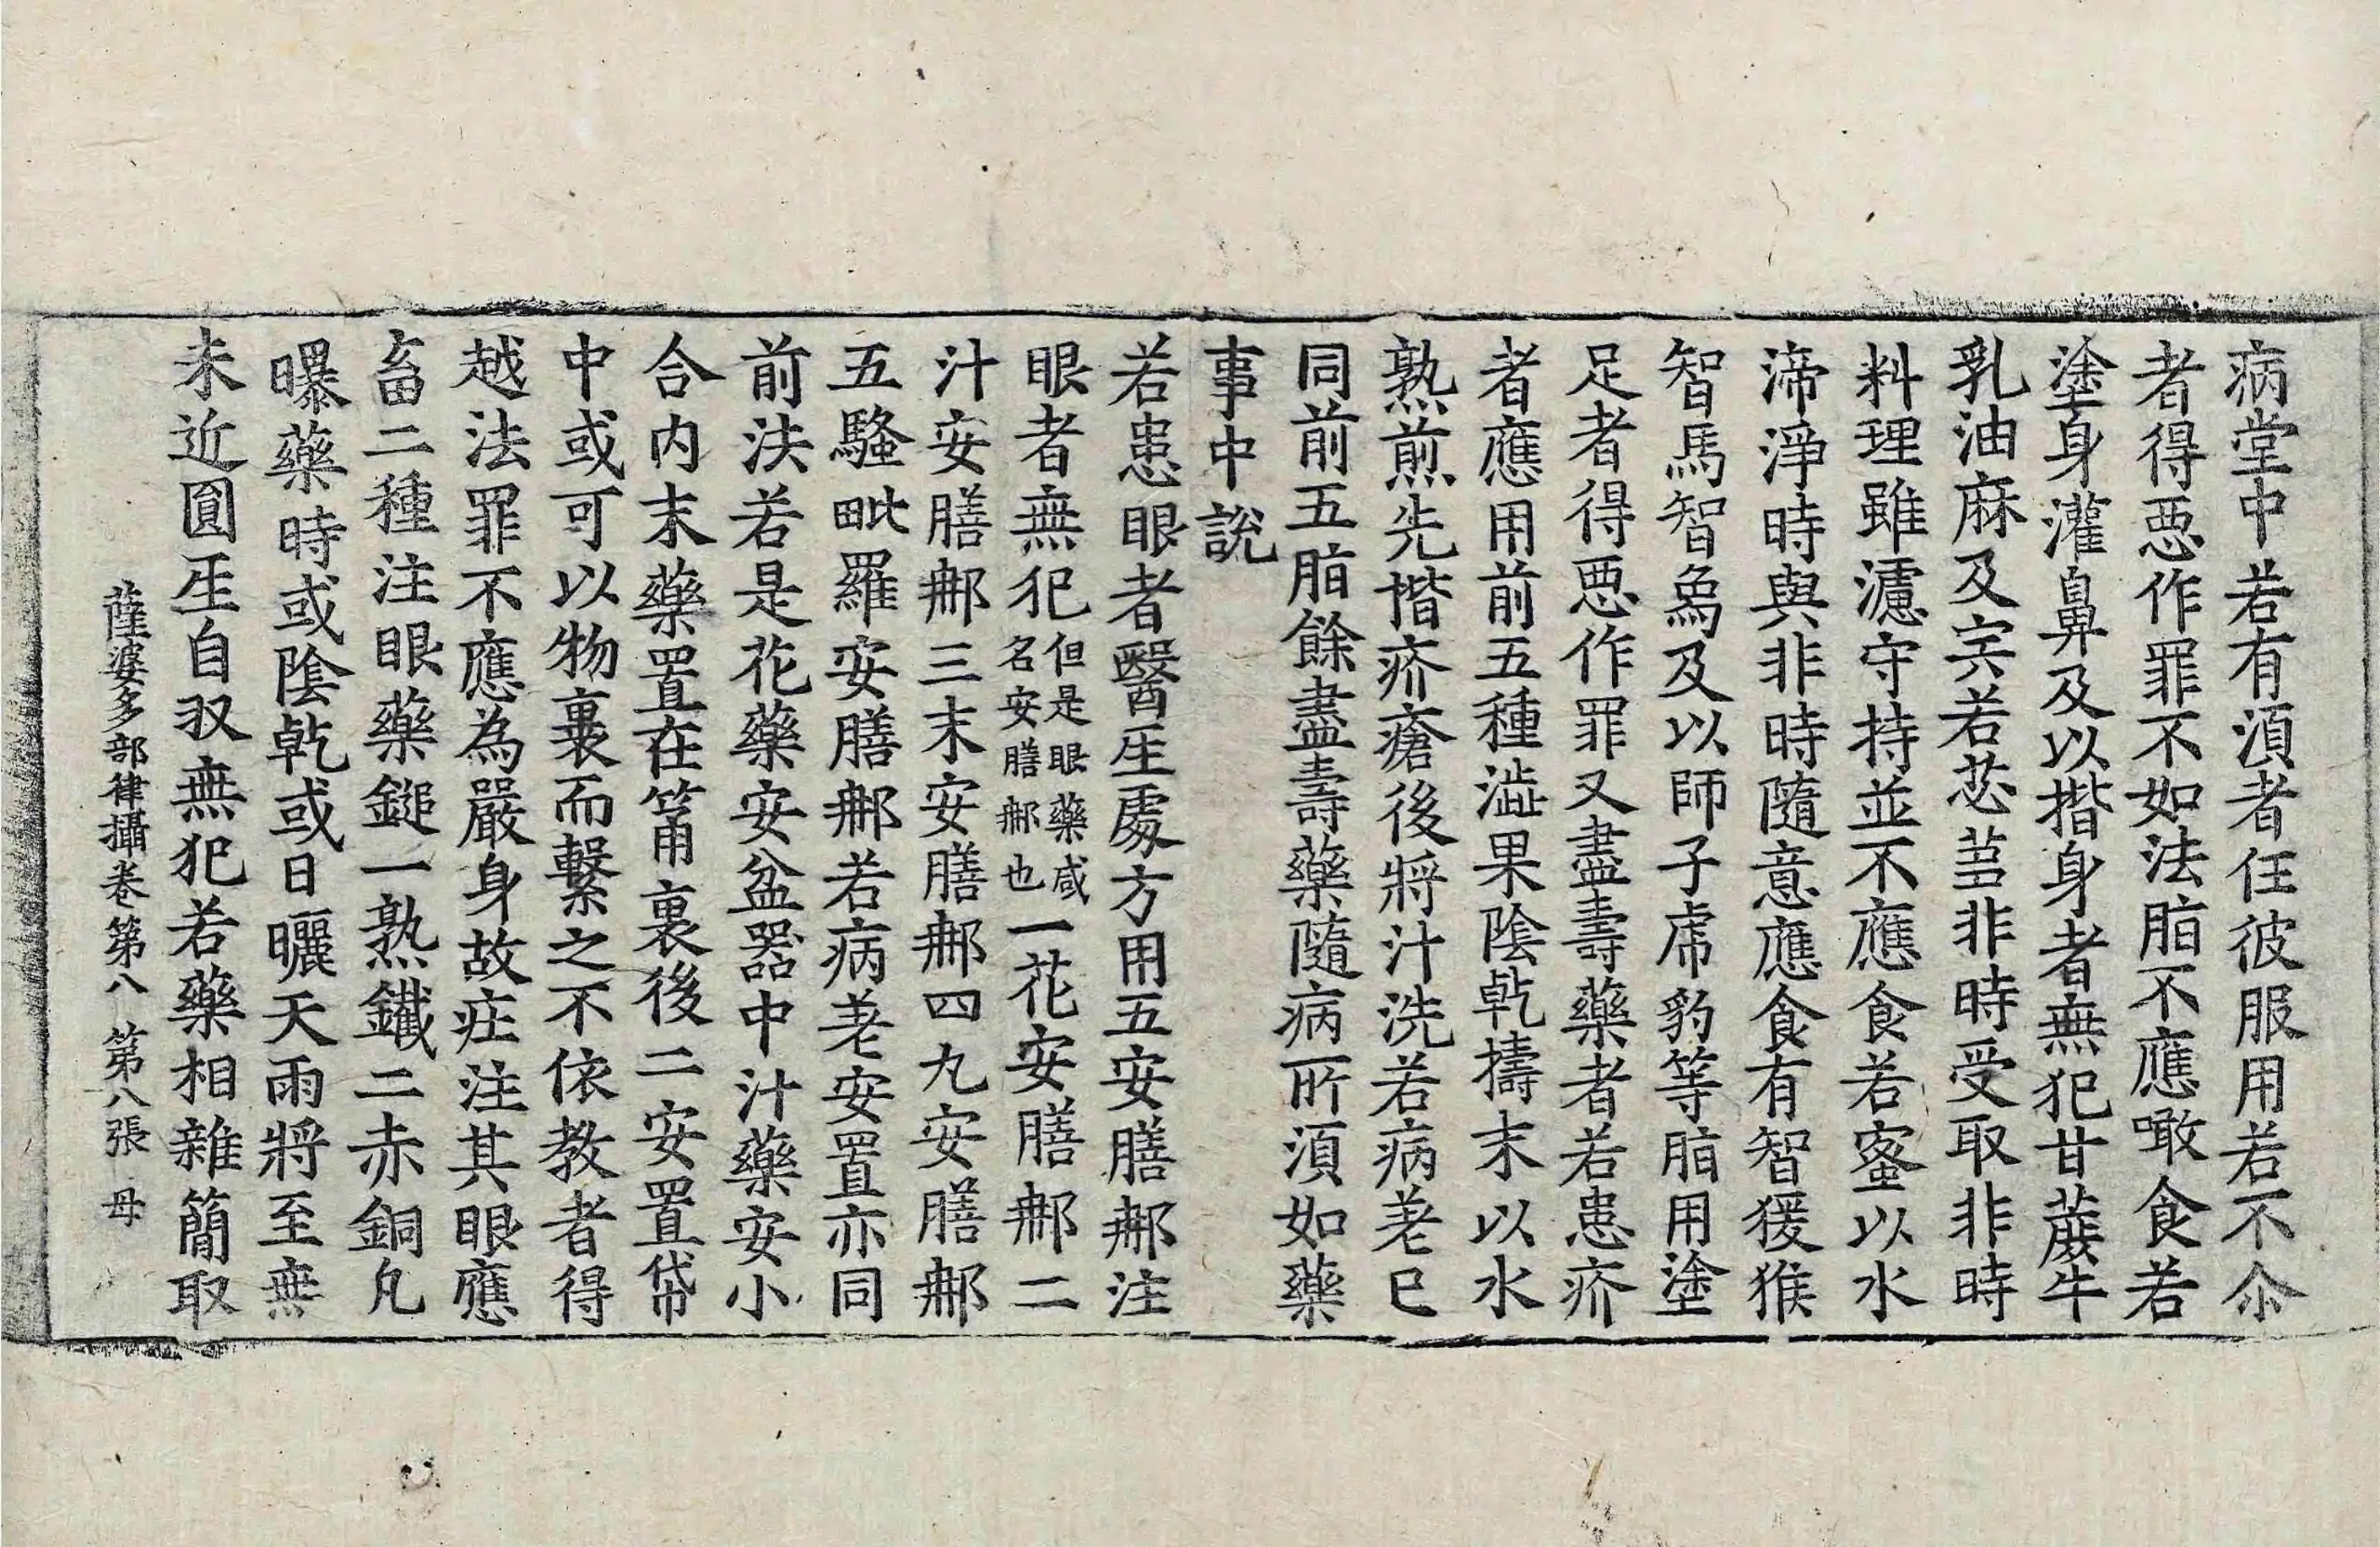 病堂中若有湏者任彼服用若不尒
者得惡作罪不如法脂不應噉食若
塗身灌鼻及以揩身者無犯甘蔗牛
乳油麻及宍若苾芻非時受取非時
料理雖濾守持並不應食若蜜以水
渧淨時與非時隨意應食有智猨猴
智馬智象及以師子虎豹等脂用塗
足者得惡作罪又盡壽藥者若患疥
者應用前五種澁果陰乾擣末以水
熟煎先揩疥瘡後將汁洗若病差已
同前五脂餘盡壽藥隨病所湏如藥
事中說
若患眼者醫人處方用五安膳那注
眼者無犯但是眼藥咸名安膳那也一花安膳那二
汁安膳那三末安膳那四丸安膳那
五騷毗羅安膳那若病差安置亦同
前法若是花藥安盆器中汁藥安小
合内末藥置在筩裏後二安置袋
中或可以物裹而繫之不依教者得
越法罪不應為嚴身故庄注其眼應
畜二種注眼藥鎚一熟鐵二赤銅凡
曝藥時或陰乾或日曬天雨將至無
未近圓人自収無犯若藥相雜簡取
薩婆多部律攝卷第八 第八張 母